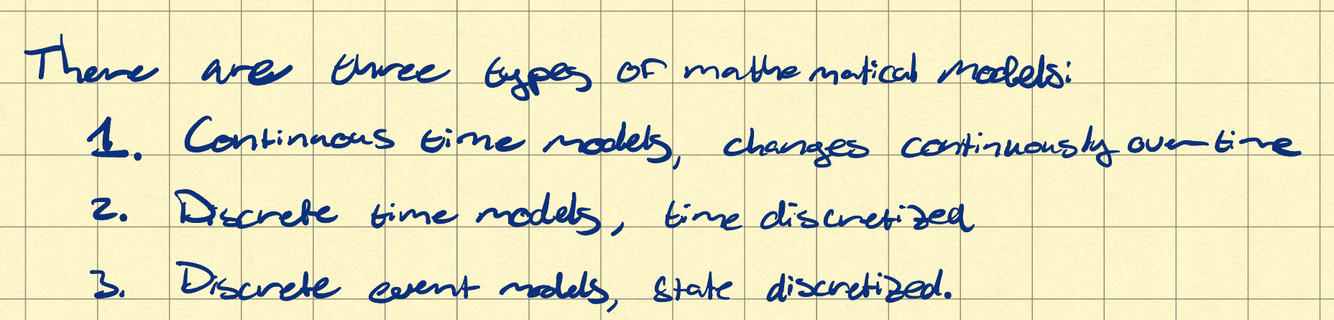 There are three types of mathematical models:
1. Continuous time models, changes continuously over time
2. Discrete time models, time discretized
3. Discrete event models, state discretized.